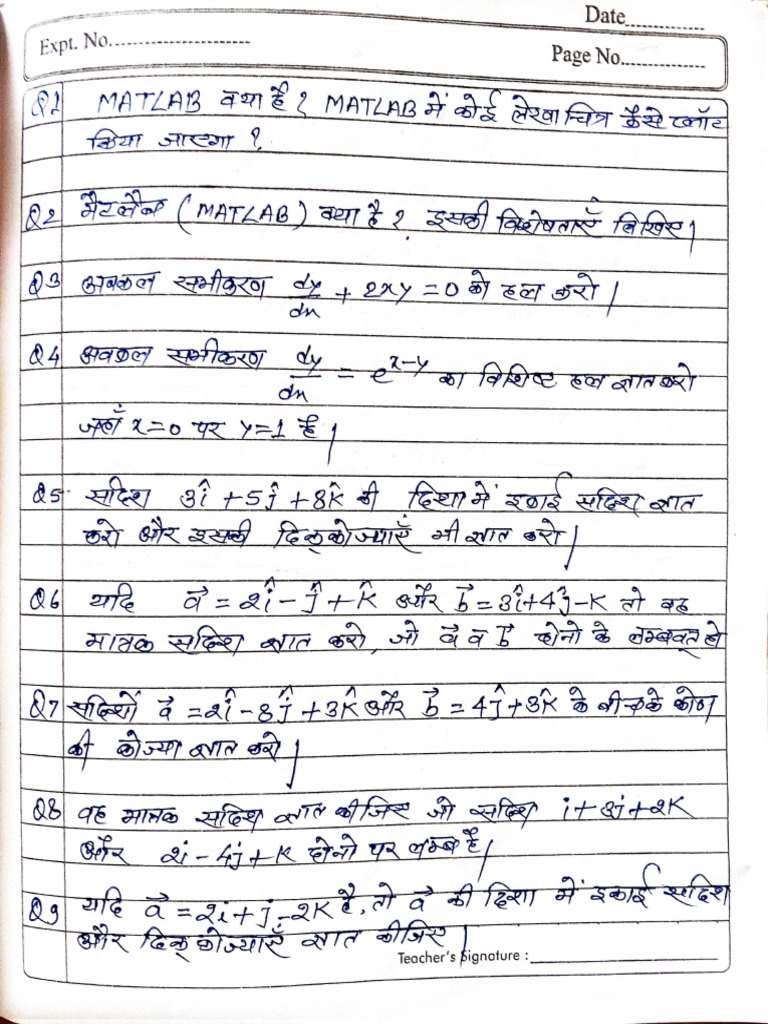 Date..............
Expt. No.........................
Page No..............
Q1 MATLAB क्या है? MATLAB में कोई लेखाचित्र कैसे प्लॉट
किया जाएगा?
Q2 मैटलैब (MATLAB) क्या है? इसकी विशेषताएँ लिखिए।
Q3 अवकल समीकरण dy/dx + 2xy = 0 को हल करो।
Q4 अवकल समीकरण dy/dx = e^(x-y) का विशिष्ट हल ज्ञात करो
जहाँ x=0 पर y=1 है।
Q5 सदिश 3î + 5ĵ + 8k̂ की दिशा में इकाई सदिश ज्ञात
करो और इसकी दिक्कोज्याएँ भी ज्ञात करो।
Q6 यदि a⃗ = 2î - ĵ + k̂ और b⃗ = 3î + 4ĵ - k तो वह
मात्रक सदिश ज्ञात करो, जो a⃗ व b⃗ दोनो के लम्बवत् हो
Q7 सदिशों a⃗ = 2î - 3ĵ + 3k̂ और b⃗ = 4ĵ + 3k̂ के बीच के कोण
की कोज्या ज्ञात करो।
Q8 वह मात्रक सदिश ज्ञात कीजिए जो सदिश i + 3j + 2k
और 2i - 4j + k दोनो पर लम्ब है।
Q9 यदि a⃗ = 2i + j - 2k है, तो a⃗ की दिशा में इकाई सदिश
और दिक्कोज्याएँ ज्ञात कीजिए।
Teacher's Signature : ____________________